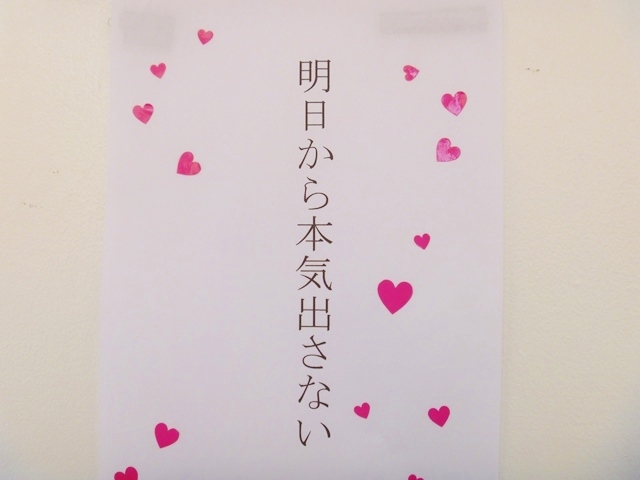 明日から本気出さない